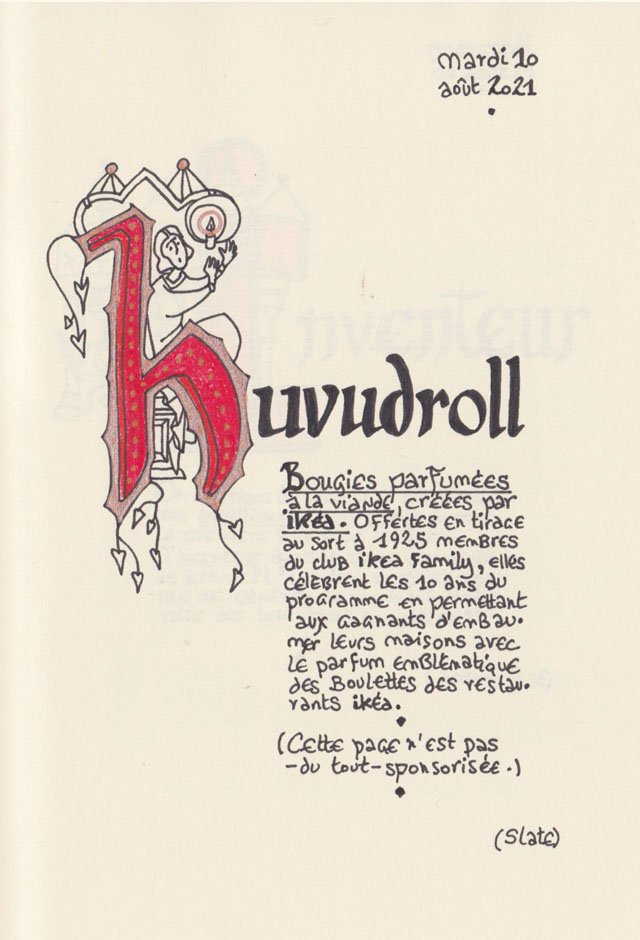 mardi 10
août 2021
huvudroll
Bougies parfumées
à la viande, créées par
ikéa. Offertes en tirage
au sort à 1925 membres
du club ikea Family, elles
célèbrent les 10 ans du
programme en permettant
aux gagnants d'embau-
mer leurs maisons avec
le parfum emblématique
des boulettes des restau-
rants ikéa.
(Cette page n'est pas
-du tout-sponsorisée.)
(Slate)
nventeur